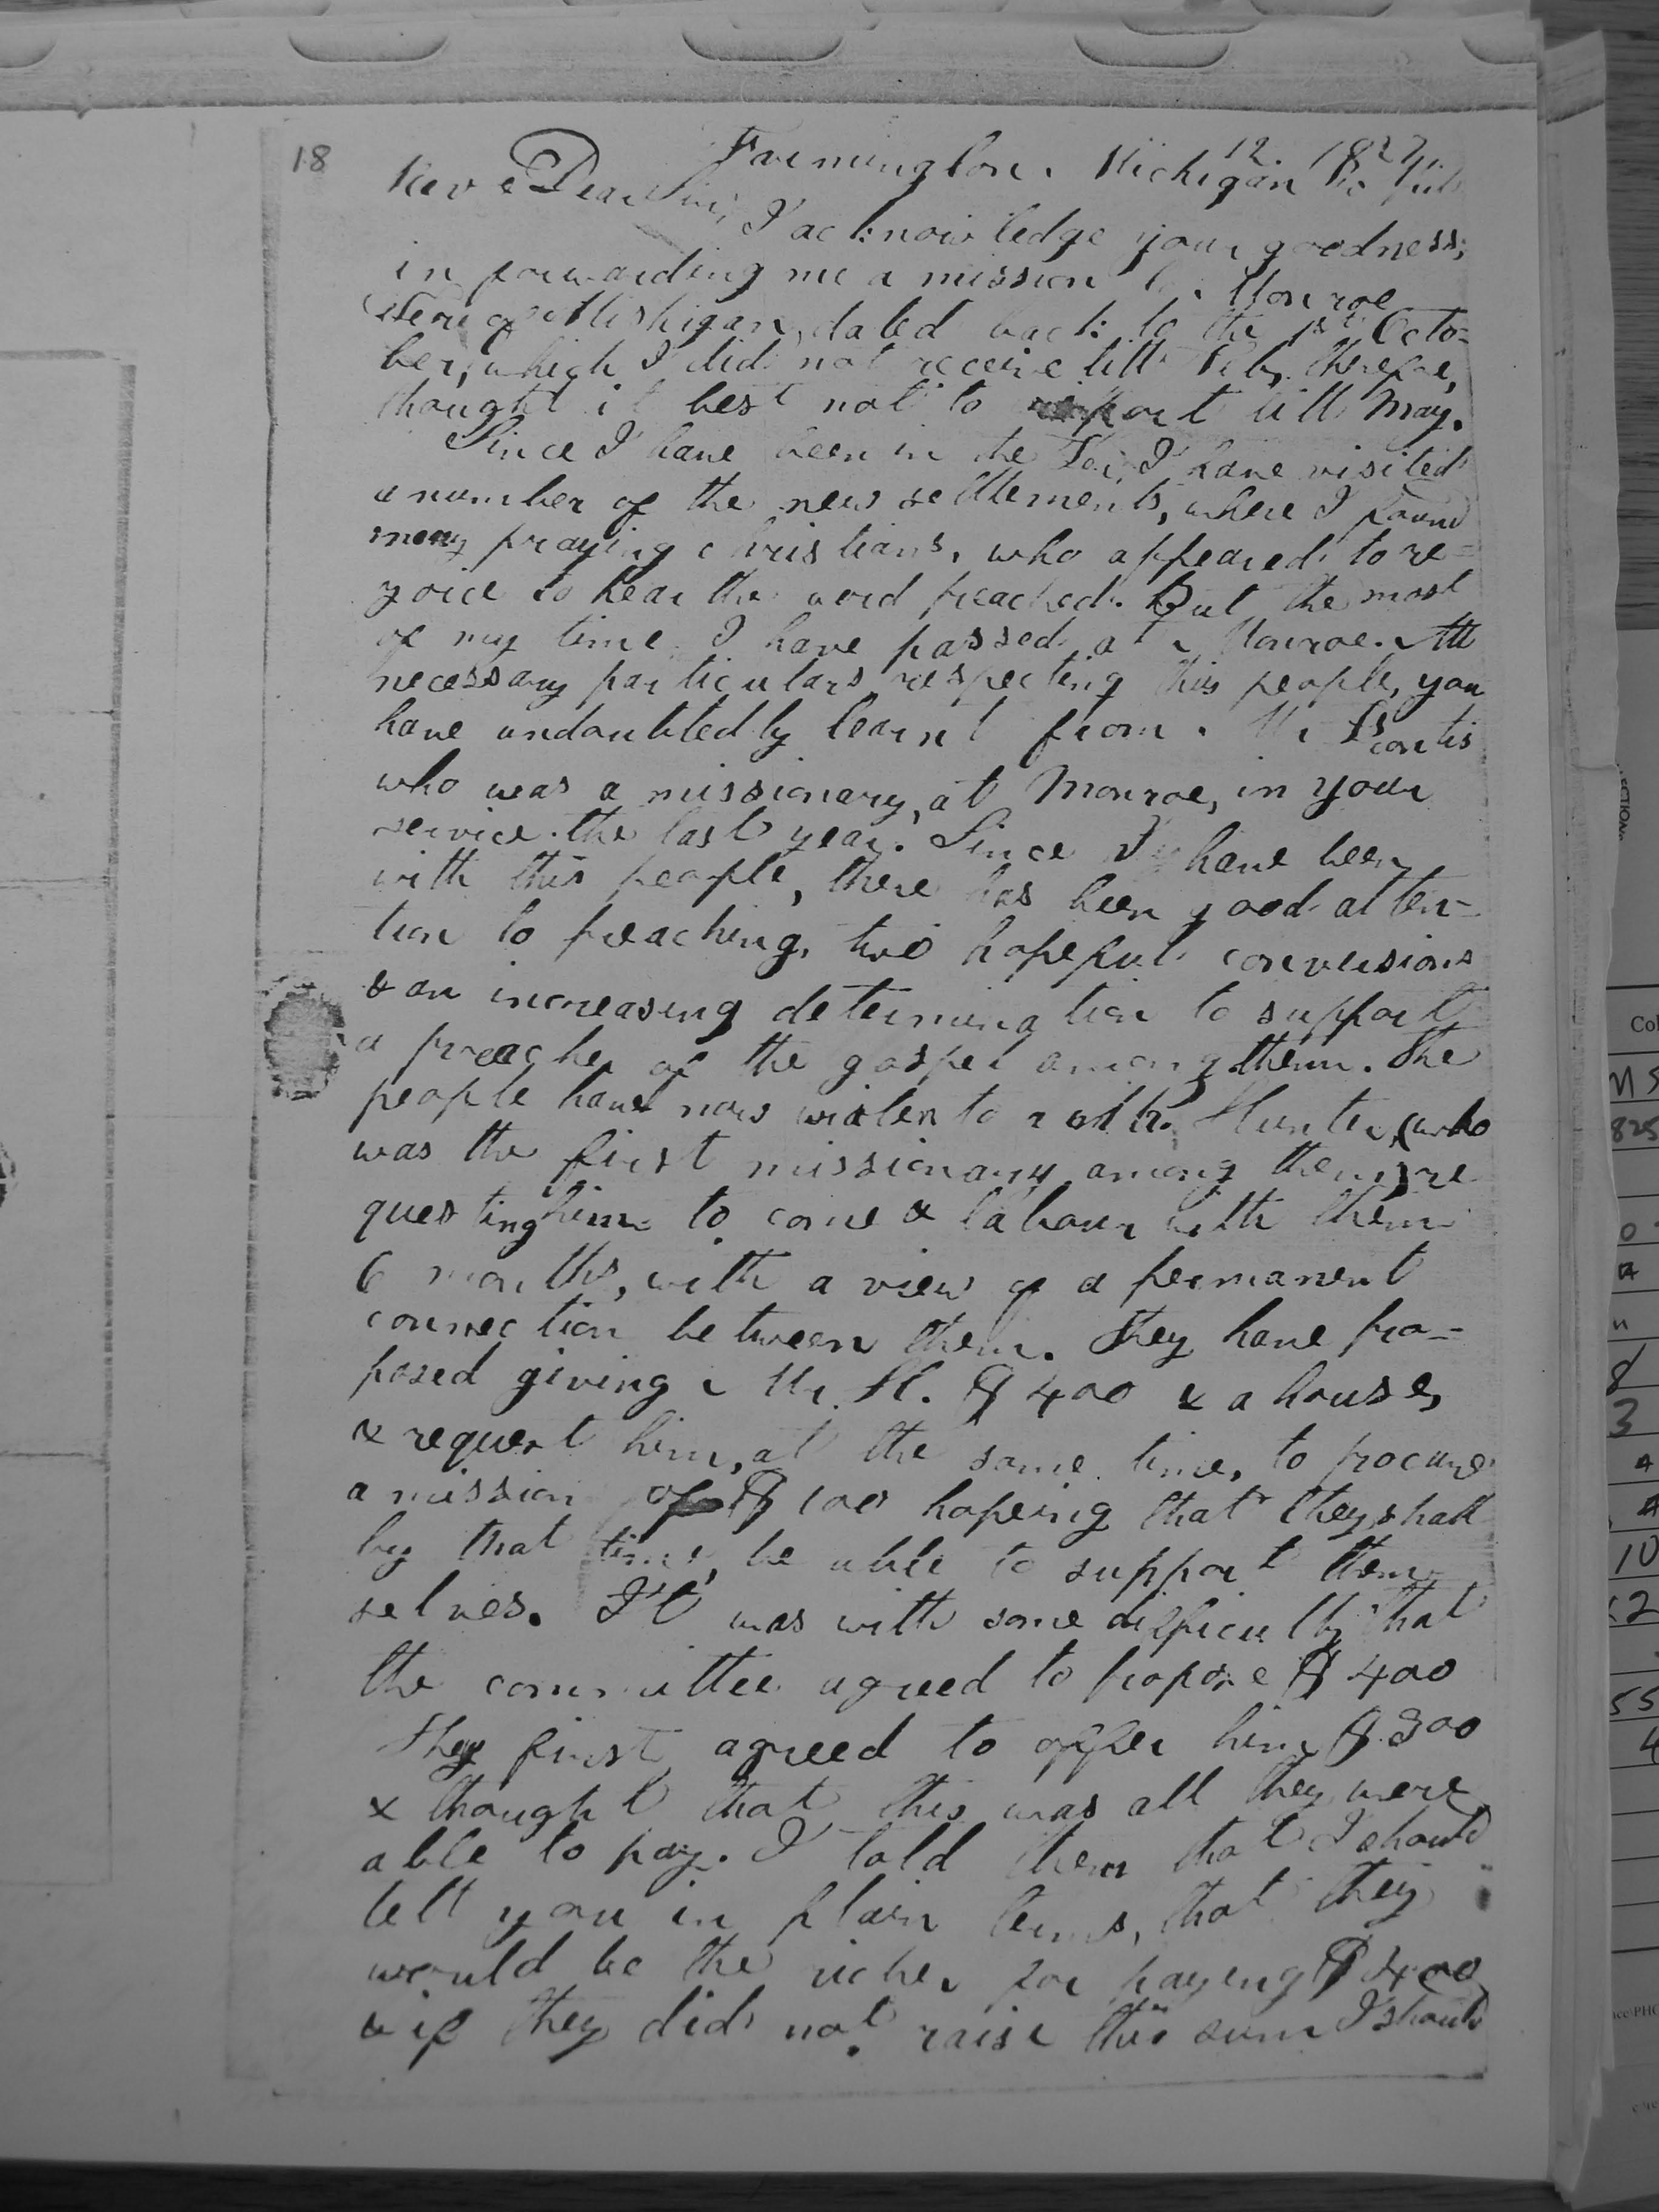 18
Farmington. Michigan 12. 1827.
Rev & Dear Sir, I acknowledge your goodness,
in forwarding me a mission Monroe
Michigan, dated back to the 1st Octo-
ber, which I did not receive till Feb. therefore,
thought it best not to report till May.
Since I have been in the Ter. I have visited
a number of the new settlements, where I found
many praying christians, who appeared to re-
joice to hear the word preached. But the most
of my time I have passed at Monroe. All
necessary particulars respecting this people, you
have undoubtedly learnt from Mr
who was a missionary, at Monroe, in your
service the last year. Since I have been
with this people, there has been good atten-
tion to preaching, two hopeful conversions
& an increasing determination to support
a preacher of the gospel among them. The
people have now writen to Mr. Hunter, (who
was the first missionary among them) re
questing him to come & labour with them
6 months, with a view of a permanent
connection between them. They have pro-
posed giving Mr. H. $400 & a house,
& request him, at the same time, to procure
a mission of $100 hoping that they shall
by that time, be able to support them
selves. It was with some difficulty that
the committee agreed to propose $400
They first agreed to offer him $300
& thought that this was all they were
able to pay. I told them that I should
tell you in plain terms, that they
would be the richer for paying $400
& if they did not raise this sum I should
Col
825
10
55
4